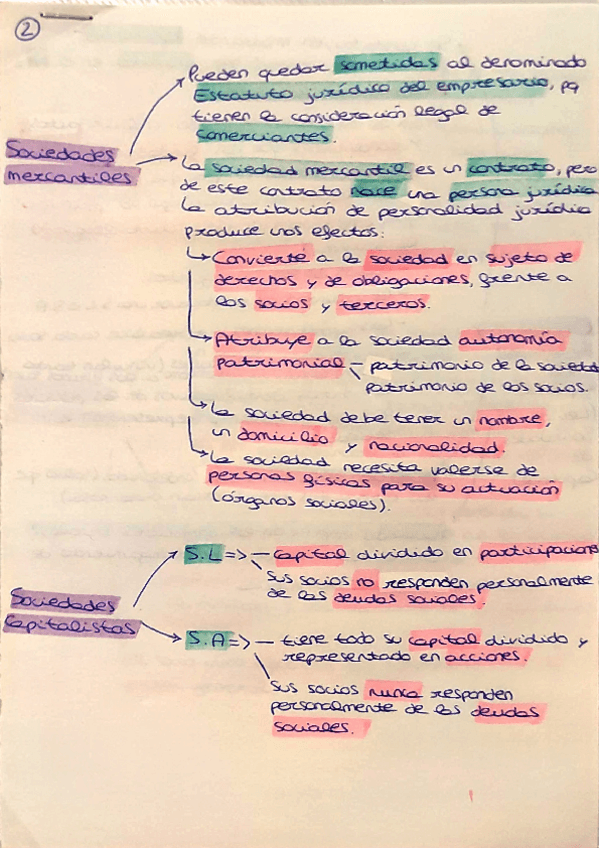 2
Pueden quedar sometidas al denominado
Estatuto jurídico del empresario, pq
tienen la consideración legal de
comerciantes.
Sociedades
mercantiles
La sociedad mercantil es un contrato, pero
de este contrato nace una persona jurídica
La atribución de personalidad jurídica
produce unos efectos:
Convierte a la sociedad en sujeto de
derechos y de obligaciones, frente a
los socios y terceros.
Atribuye a la sociedad autonomía
patrimonial - patrimonio de la sociedad
patrimonio de los socios.
La sociedad debe tener un nombre,
un domicilio y nacionalidad.
La sociedad necesita valerse de
personas físicas para su actuación
(órganos sociales).
Sociedades
Capitalistas
S.L => - Capital dividido en participaciones
Sus socios no responden personalmente
de las deudas sociales.
S.A => - tiene todo su capital dividido y
representado en acciones.
Sus socios nunca responden
personalmente de las deudas
sociales.